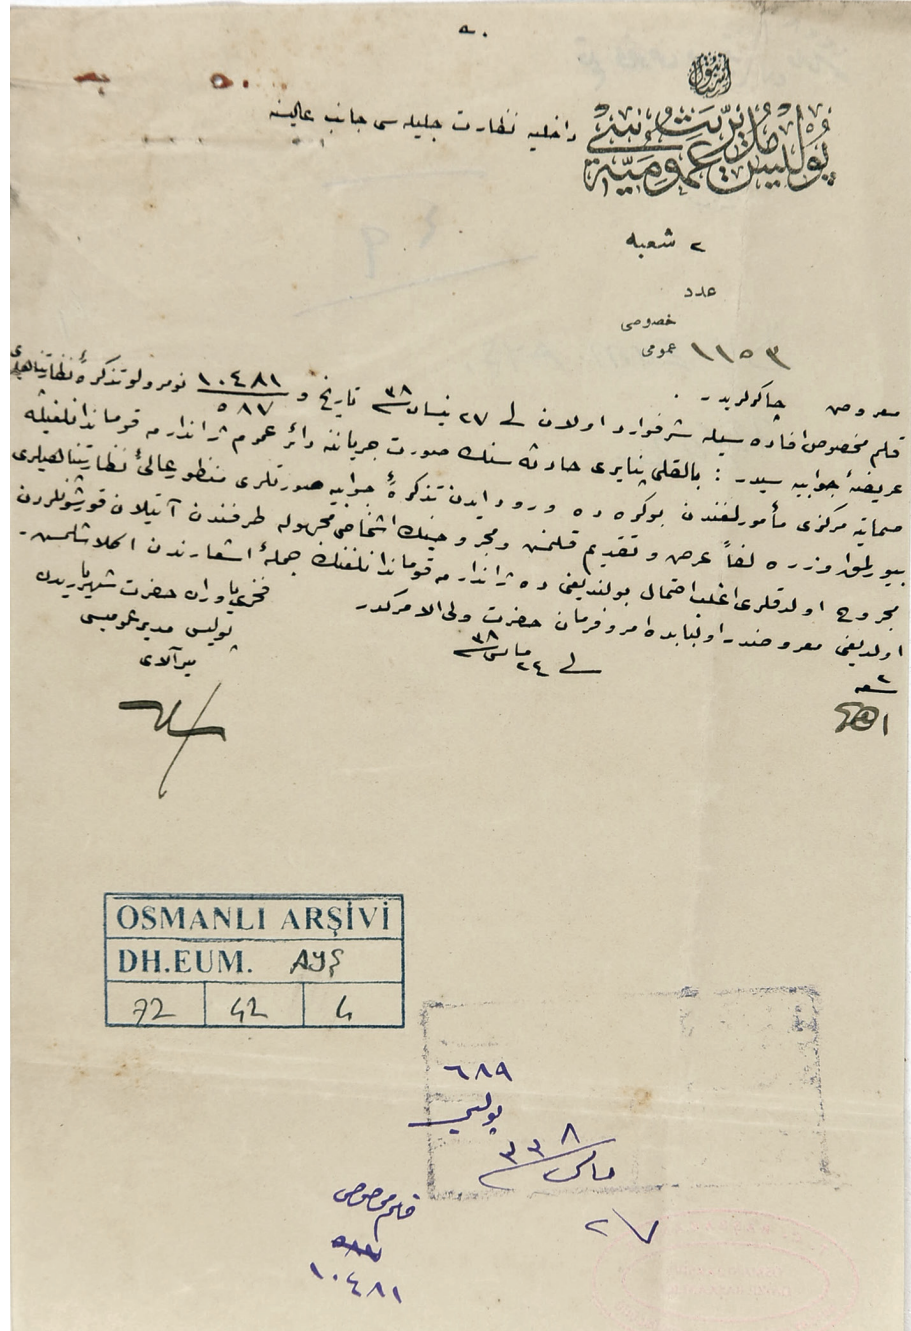 ٥٠
استانبول
پوليس مديريت
عموميه سى
داخليه نظارت جليله سى جانب عاليسنه
٢ شعبه
عدد
خصوصى
عمومى ١١٥٣
معروض چاكرلريدر
قلم مخصوص افاده سيله شرفوارد اولان فى ٢٧ نيسان ٣٨ تاريخ و ١٠٤٨١ / ٥٨٧ نومرولو تذكرهٔ نظارتپناهيلرى
عريضهٔ جوابيه سيدر : بالقلى پنايرى حادثه سنك صورت جرياننه دائر عموم ژاندارمه قوماندانلغيله
مركزى مأمورلغندن بوكره ده ورود ايدن تذكرهٔ جوابيه صورتلرى منظور عالئ نظارتپناهيلرى
بيورلمق اوزره لفاً عرض و تقديم قلنمش ومجروحينك اشخاص مجهوله طرفندن آتيلان قورشونلردن
مجروح اولدقلرى اغلب احتمال بولنديغى ده ژاندارمه قوماندانلغنك جملهٔ اشعارندن اكلاشلمش
اولديغى معروضدر اولبابده امر وفرمان حضرت ولى الامركدر
فى ٢٤ مايس ٣٨
فخرى ياوران حضرت شهرياريدن
پوليس مدير عموميسى
ميرآلاى
٢ شعبه
OSMANLI ARŞİVİ
DH.EUM. AYŞ
72 42 4
٦٨٩
پوليس
٣٣٨
مايس
٢٧
قلم مخصوص
٥٨٧
١٠٤٨١